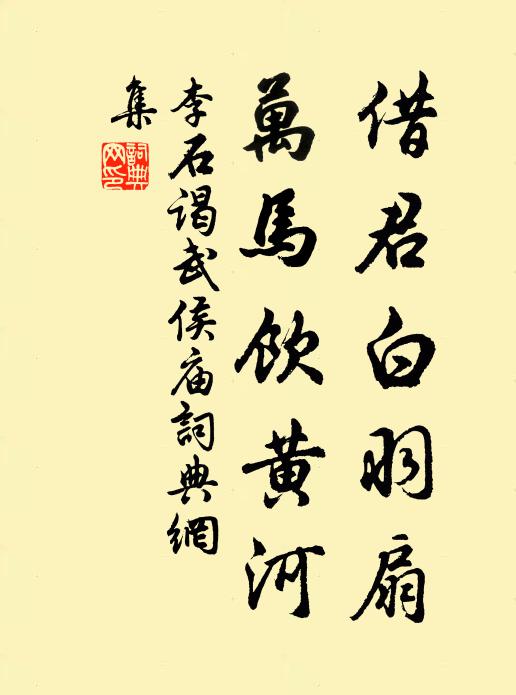 借君白羽扇
萬馬飲黃河
李石谒武侯庙詞典網
集
詞典網印